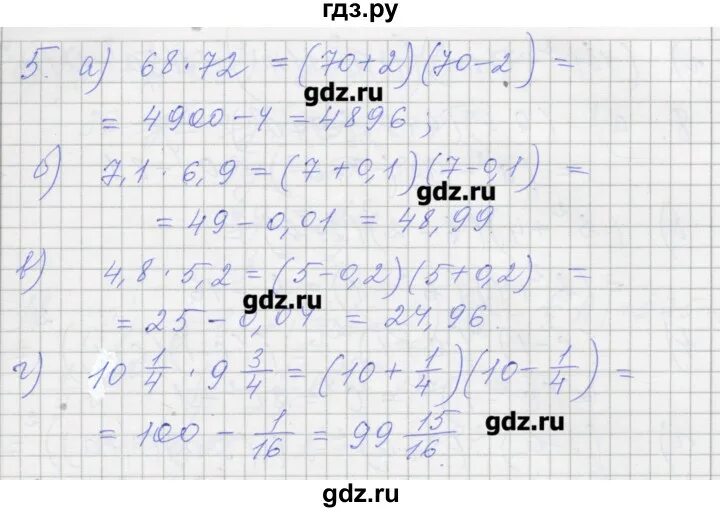 гдз.ру
5. а) 68 · 72 = (70+2)(70-2) =
gdz.ru
= 4900-4 = 4896;
б) 7,1 · 6,9 = (7+0,1)(7-0,1) =
gdz.ru
= 49-0,01 = 48,99
в) 4,8 · 5,2 = (5-0,2)(5+0,2) =
gdz.ru
= 25 - 0,04 = 24,96
г) 10 1/4 · 9 3/4 = (10 + 1/4)(10 - 1/4) =
= 100 - 1/16 = 99 15/16
gdz.ru
gdz.ru